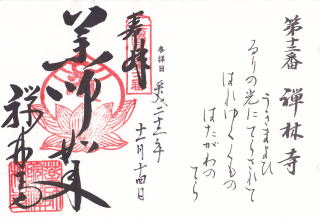 第十二番 禅林寺
うきまよひ
るりの光にてらされて
はれゆくくもの
はたがわの
てら
参拝日
平成二十三年
十一月十四日
奉拝
薬師如来
禅林寺